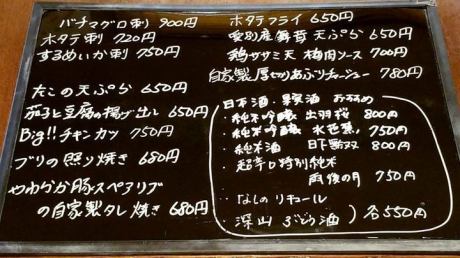 バチマグロ刺 900円
ホタテ刺 720円
するめいか刺 750円
たこの天ぷら 650円
茄子と豆腐の揚げ出し 650円
Big!!チキンカツ 750円
ブリの照り焼き 680円
やわらか豚スペアリブ
の自家製タレ焼き 680円
ホタテフライ 650円
愛別産舞茸 天ぷら 650円
鶏ササミ天 梅肉ソース 700円
自家製厚切りあぶりチャーシュー 780円
日本酒・果実酒 おすすめ
・純米吟醸 出羽桜 800円
・純米吟醸 水芭蕉 750円
・純米酒 日下無双 800円
・超辛口特別純米
雨後の月 750円
・なしのリキュール
・深山 ぶどう酒 ) 各550円